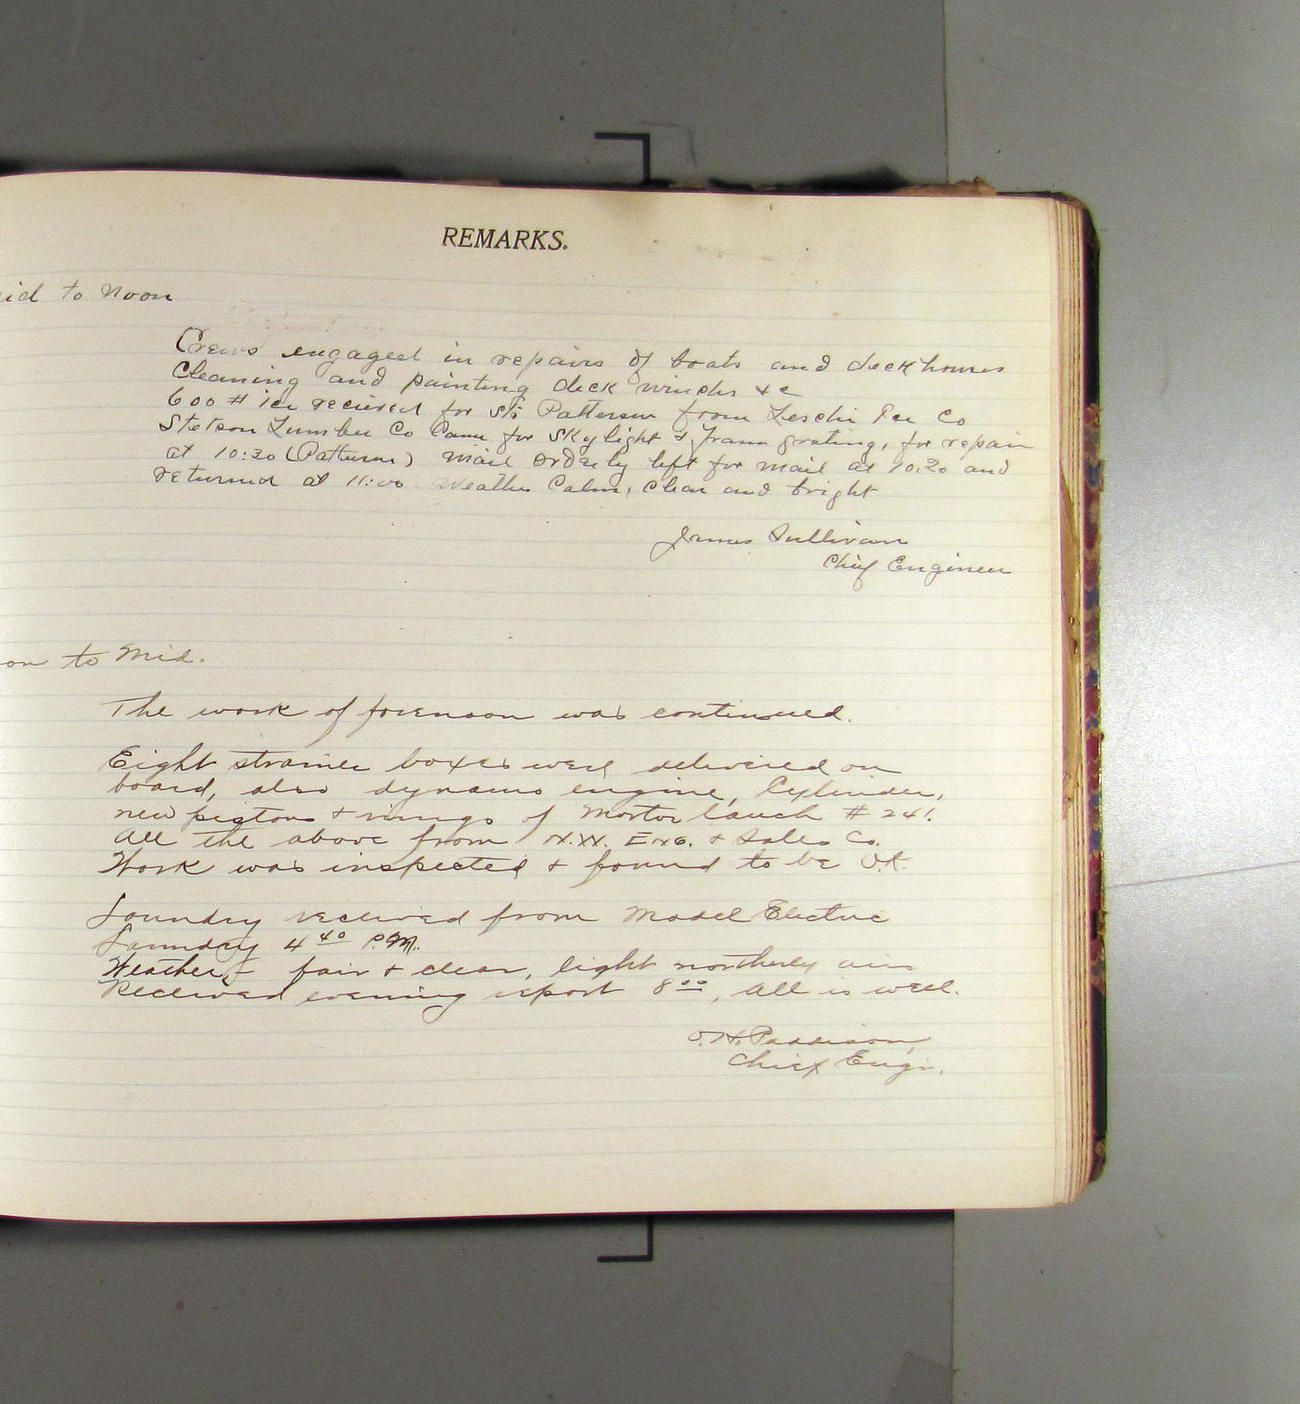 REMARKS.
id to Noon
Crews engaged in repairs of boats and deck houses
Cleaning and painting deck winches &c
600 # ice recieved for S/s Patterson from Leschi Ice Co
Stetson Lumber Co Came for Skylight & frame grating, for repair
at 10:30 (Patterson) Mail Orderly left for mail at 10:20 and
returned at 11:00 Weather Calm, Clear and bright
James Sullivan
Chief Engineer
on to Mid.
The work of forenoon was continued.
Eight strainer boxes were delivered on
board, also dynamo engine, Cylinder,
new pistons & rings of Mortor lauch # 241.
All the above from N.W. Eng. & Sales Co.
Work was inspected & found to be O.K.
Laundry received from Model Electric
Laundry 4 40 P.M.
Weather - fair & clear, light northerly airs
Received evening report 8 00, all is well.
O.H. Paddison,
Chief Engr.